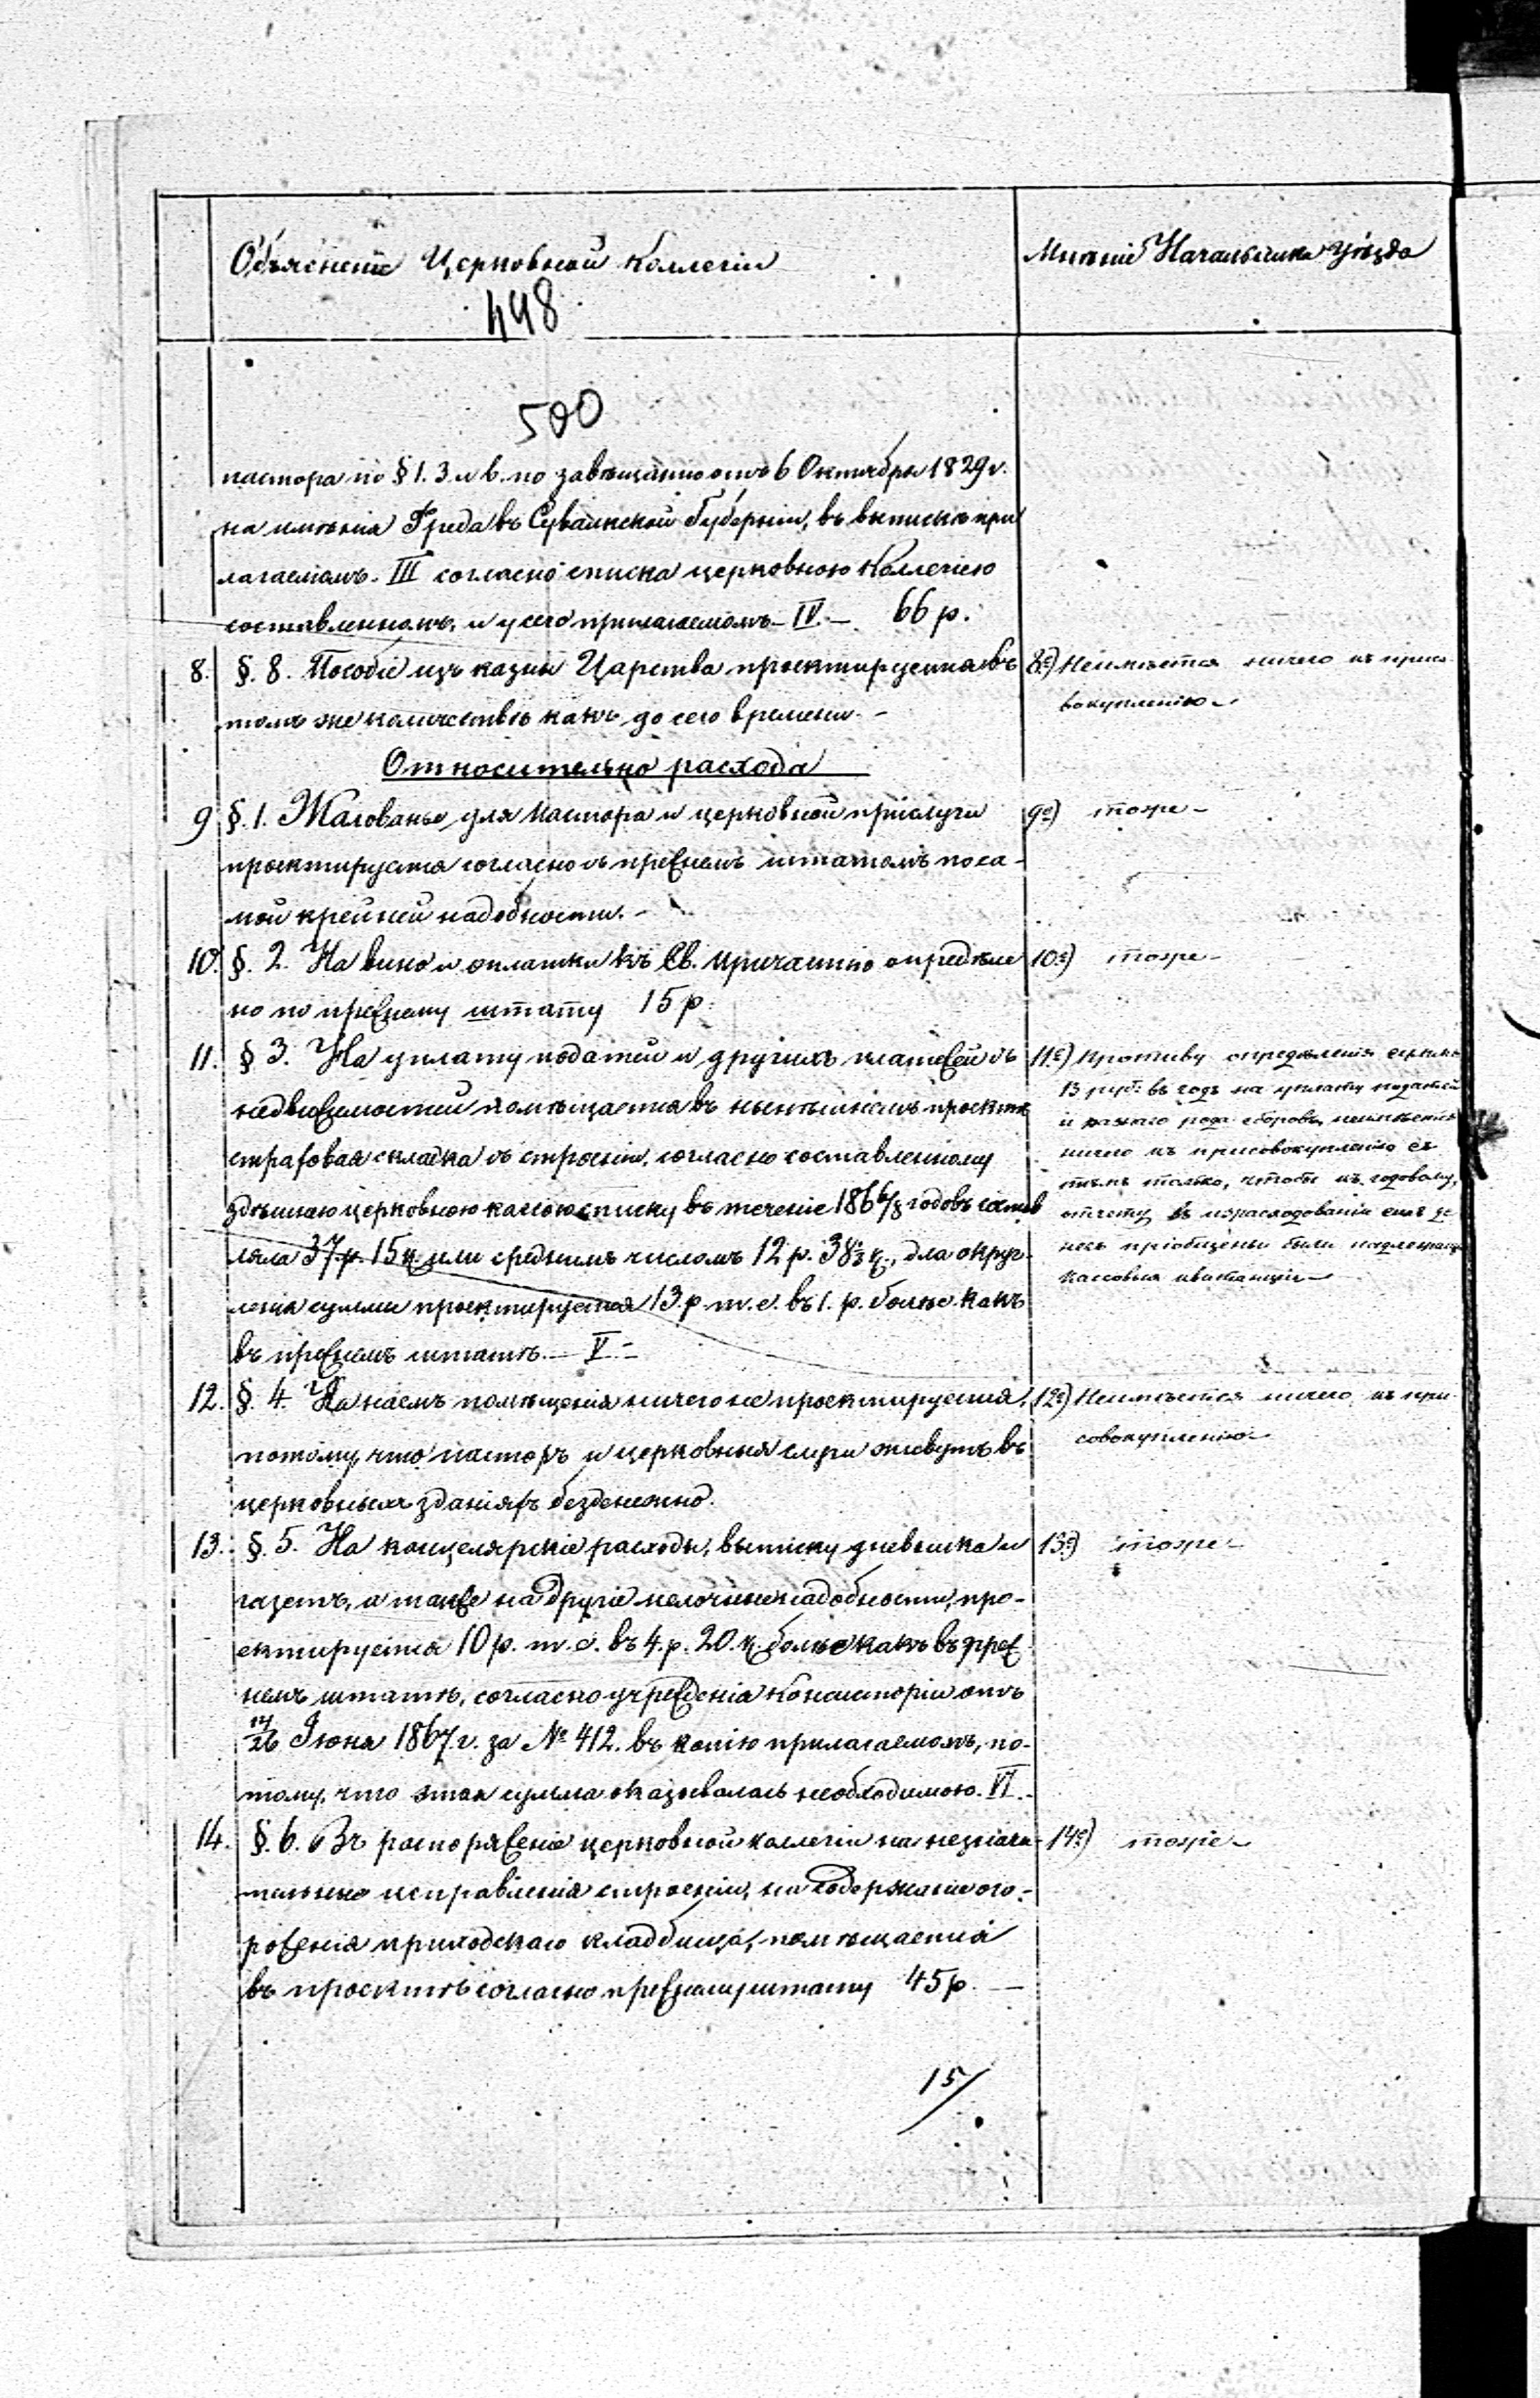 Объясненіе Церковной Коллегіи
Мнѣніе Начальника Уѣзда
448
500
пастора по § 1. 3 и 6. по завѣщанію отъ 6 Октября 1829 г.
на имѣнія Греда въ Сувалкской Губерніи, въ выпискѣ при
лагаемомъ. III согласно списка церковною Коллегіею
составленномъ, и у сего прилагаемомъ IV. — 66 р.
8. § 8. Пособіе изъ казны Царства проектируется въ
томъ же количествѣ какъ до сего времени. -
8е) Неимѣется ничего къ присо
вокупленію -
Относительно расхода
9 § 1. Жалованье для пастора и церковной прислуги
проектируется согласно съ прежнемъ штатомъ по са-
мой крейней надобности. -
9е) тоже -
10. § 2. На вино и оплатки къ Св. Причастію опредѣле
но по прежнему штату 15 р.
10е) тоже -
11. § 3. На уплату податей и другихъ платежей съ
недвижимостей помѣщается въ нынѣшнемъ проектѣ
страховая складка съ строеніи, согласно составленному
здѣшнею церковною кассою списку въ теченіе 186 6/8 годовъ состав
ляла 37 р. 15 к. или среднимъ числомъ 12 р. 38 1/3 к., для округ-
ленія суммы проектируется 13 р. т. е. въ 1. р. больше какъ
въ прежнемъ штатѣ. — V. -
11е) Противу опредѣленія суммы
13 руб. въ годъ на уплату податей
и разнаго рода сборовъ, неимѣется
ничего къ присовокупленію съ
тѣмъ только, чтобы къ годовому,
отчету въ израсходованіи сихъ де
негъ пріобщены были надлежащія
кассовыя квитанціи -
12. § 4. На наемъ помѣщенія ничего не проектируется,
потому, что пасторъ и церковныя слуги живутъ въ
церковныхъ зданіяхъ безденежно.
12е) Неимѣется ничего къ при
совокупленію -
13. § 5. На канцелярскіе расходы, выписку дневника и
газетъ, а также на другіе мелочные надобности, про-
ектируется 10 р. т. е. въ 4. р. 20. к. больше какъ въ преж
немъ штатѣ, согласно учрежденія Консисторіи отъ
14/26 Іюня 1867 г. за № 412. въ копію прилагаемомъ, по-
тому, что этая сумма оказывалась необходимою. VI. -
13е) тоже -
14. § 6. Въ распоряженіе церковной коллегіи на незначи-
тельные исправленія строеніи, на содержаніе ого-
роженія приходскаго кладбища, помѣщается
въ проектѣ согласно прежнему штату 45 р. —
14е) тоже -
15/